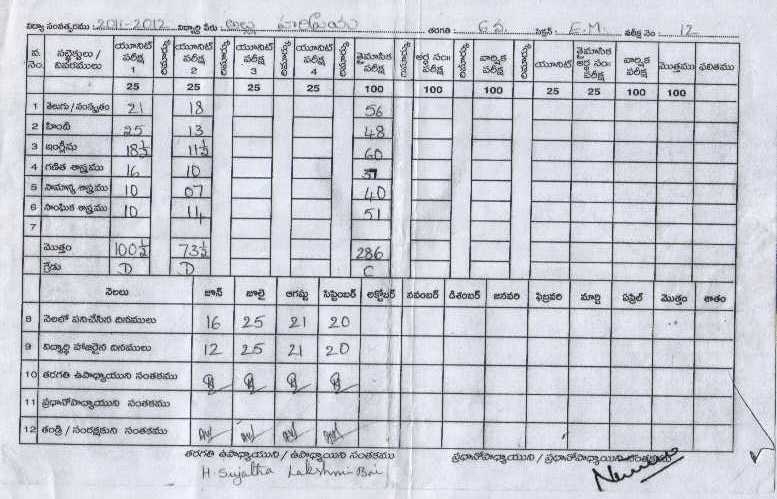 విద్యా సంవత్సరము : 2011-2012 విద్యార్థి పేరు తరగతి : 6 వ. సెక్షన్ E.M. పరీక్ష నెం : 12
వ. నెం. సబ్జెక్టులు / వివరములు యూనిట్ పరీక్ష 1 రిమార్క్సు యూనిట్ పరీక్ష 2 రిమార్క్సు యూనిట్ పరీక్ష 3 రిమార్క్సు యూనిట్ పరీక్ష 4 రిమార్క్సు త్రైమాసిక పరీక్ష రిమార్క్సు అర్ధ సం॥ పరీక్ష రిమార్క్సు వార్షిక పరీక్ష రిమార్క్సు యూనిట్ త్రైమాసిక అర్ధ సం. పరీక్ష వార్షిక పరీక్ష మొత్తము ఫలితము
25 25 25 25 100 100 100 25 25 100 100
1 తెలుగు / సంస్కృతం 21 18 56
2 హిందీ 25 13 48
3 ఇంగ్లీషు 18½ 11½ 60
4 గణిత శాస్త్రము 16 10 31
5 సామాన్య శాస్త్రము 10 07 40
6 సాంఘిక శాస్త్రము 10 14 51
7
మొత్తం 100½ 73½ 286
గ్రేడు D D C
నెలలు జూన్ జూలై ఆగష్టు సెప్టెంబర్ అక్టోబర్ నవంబర్ డిశంబర్ జనవరి ఫిబ్రవరి మార్చి ఏప్రిల్ మొత్తం శాతం
8 నెలలో పనిచేసిన దినములు 16 25 21 20
9 విద్యార్థి హాజరైన దినములు 12 25 21 20
10 తరగతి ఉపాధ్యాయుని సంతకము
11 ప్రధానోపాధ్యాయుని సంతకము
12 తండ్రి / సంరక్షకుని సంతకము
తరగతి ఉపాధ్యాయుని / ఉపాధ్యాయిని సంతకము ప్రధానోపాధ్యాయుని / ప్రధానోపాధ్యాయిని సంతకము
H. Sujatha Lakshmi Bai